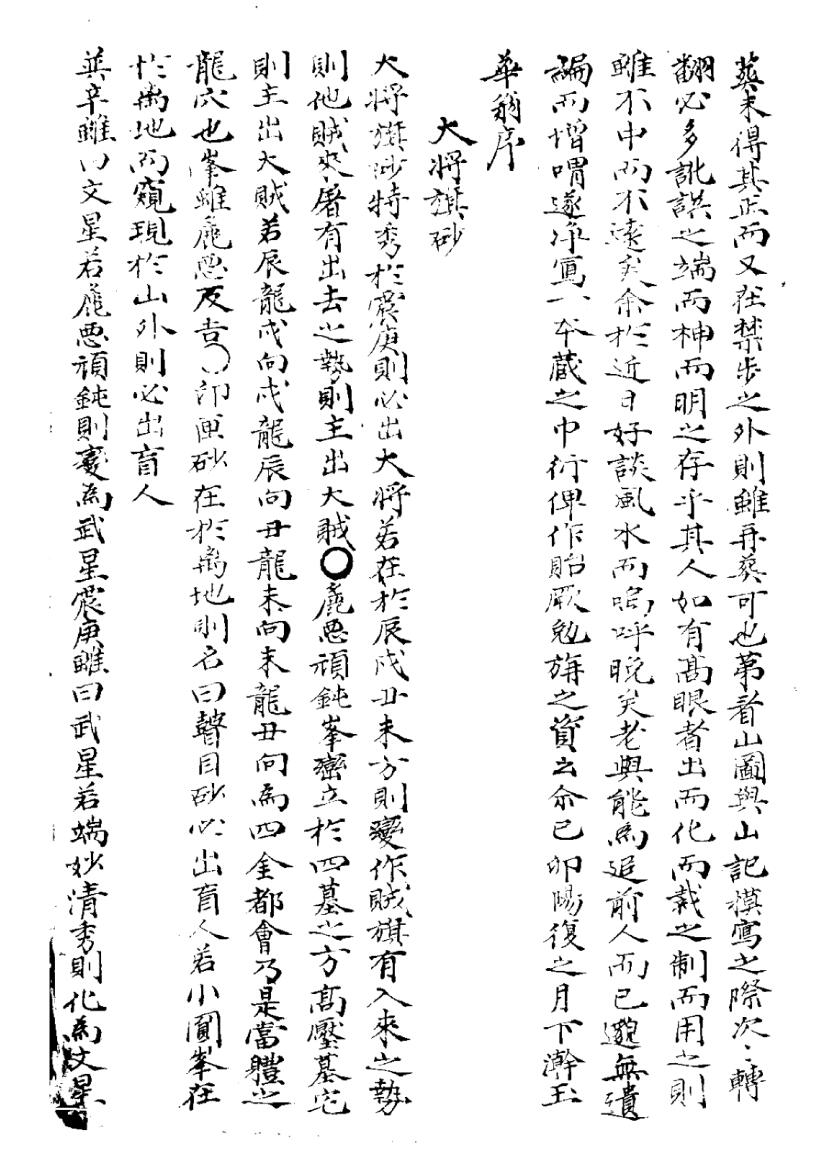 葬未得其正而又在禁步之外則雖再葬可也第看山圖與山記模寫之際次〻轉
翻必多訛誤之端而神而明之存乎其人如有高眼者出而化而裁之制而用之則
雖不中而不遠矣余於近日好談風水而嗚呼晚矣老與能爲追前人而已邈無遺
編而增喟遂净寫一本藏之巾衍俾作貽厥勉旃之資云尒己卯陽復之月下澣玉
華翁序
大將旗砂
大將旗砂特秀於震庚則必出大將若在於辰戌丑未方則變作賊旗有入來之勢
則他賊來屠有出去之勢則主出大賊〇麁惡頑鈍峯巒立於四墓之方高壓墓宅
則主出大賊若辰龍戌向戌龍辰向丑龍未向未龍丑向爲四金都會乃是當軆之
龍穴也峯雖麁惡反吉〇印匣砂在於离地則名曰瞽目砂必出盲人若小圓峯在
於离地而窺現於山外則必出盲人
巽辛雖曰文星若麁惡頑鈍則變爲武星震庚雖曰武星若端妙清秀則化爲文星